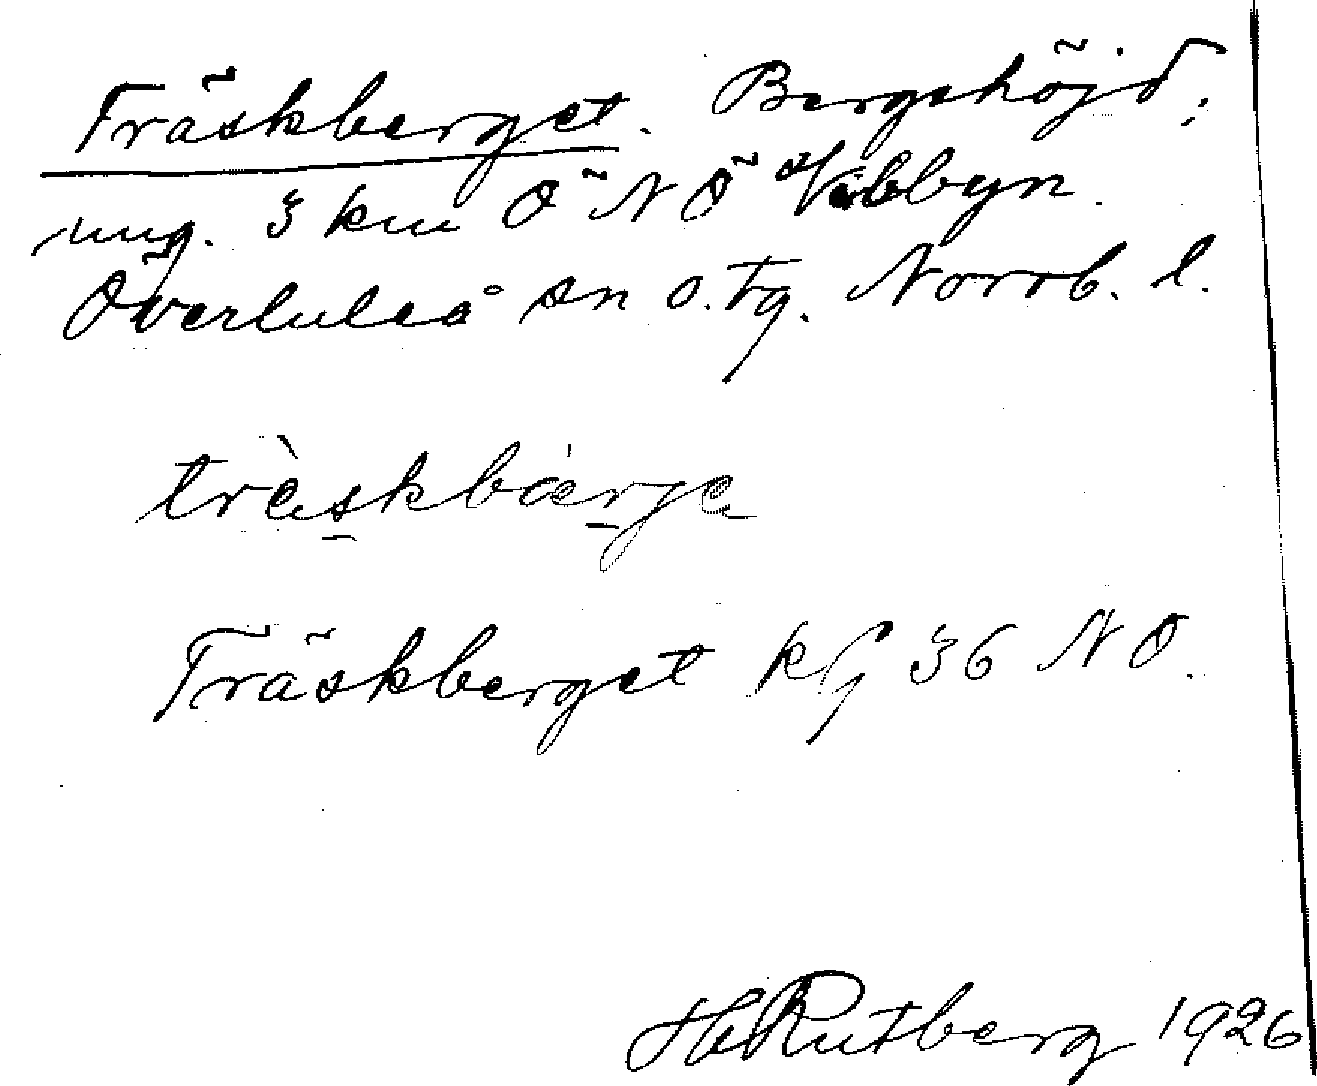 Träskberget. Bergshöjd;
ung. 3 km ÖNÖ Vibbyn.
Överluleå sn o. tg. Norrb. l.
trὲskbærje
Träskberget kg 36 NO.
H Rutberg 1926